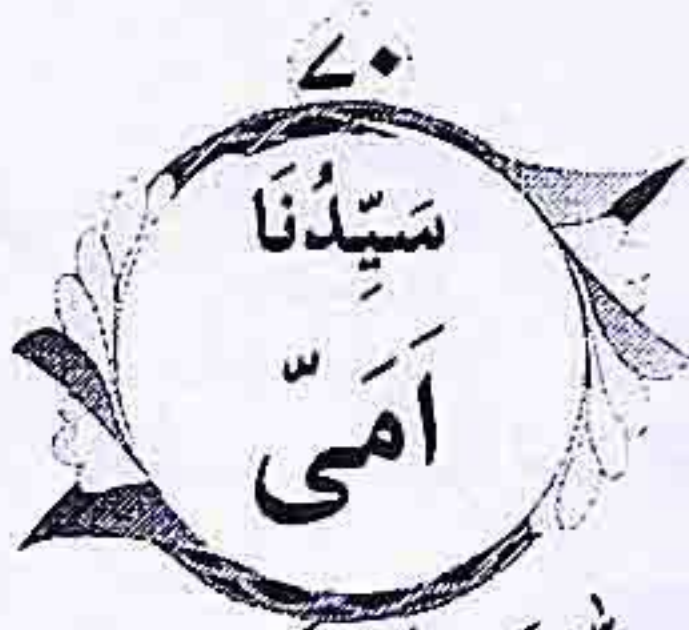 ۷۰
سَيِّدُنَا
اَمَیّ